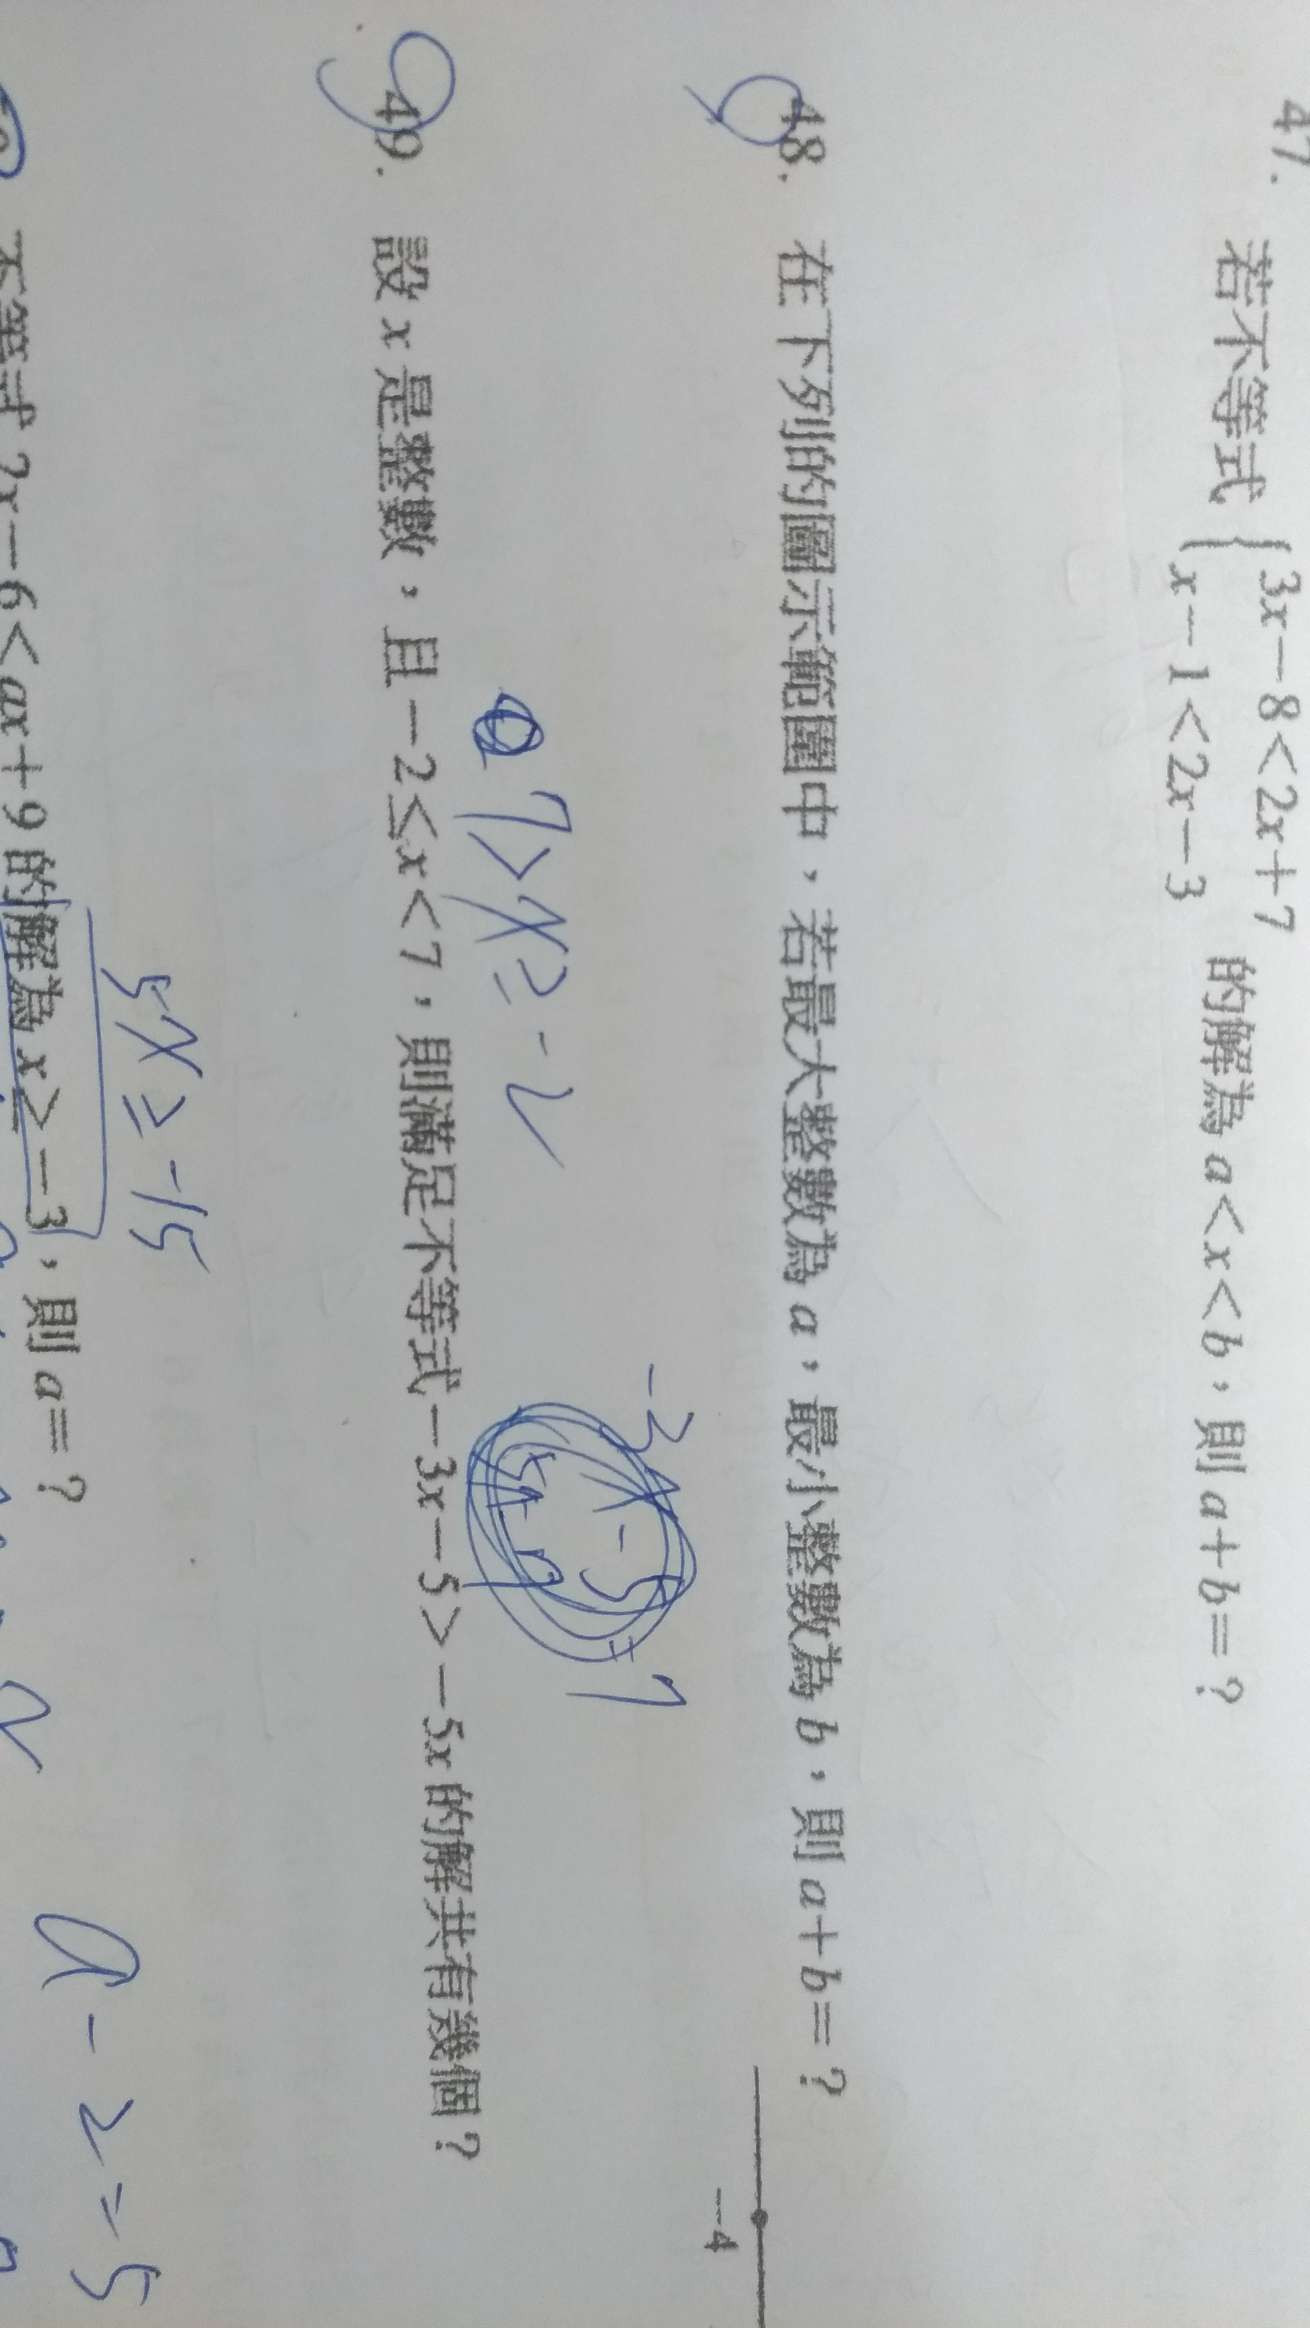 47. 若不等式 { 3x－8<2x+7
x－1<2x－3 的解為 a<x<b，則 a+b=？
48. 在下列的圖示範圍中，若最大整數為 a，最小整數為 b，則 a+b=？
－4
49. 設 x 是整數，且－2≤x<7，則滿足不等式－3x－5>－5x 的解共有幾個？
7>x≥-2
5x≥-15
不等式 2x－6<ax+9 的解為 x≥－3，則 a=？
a-2=5